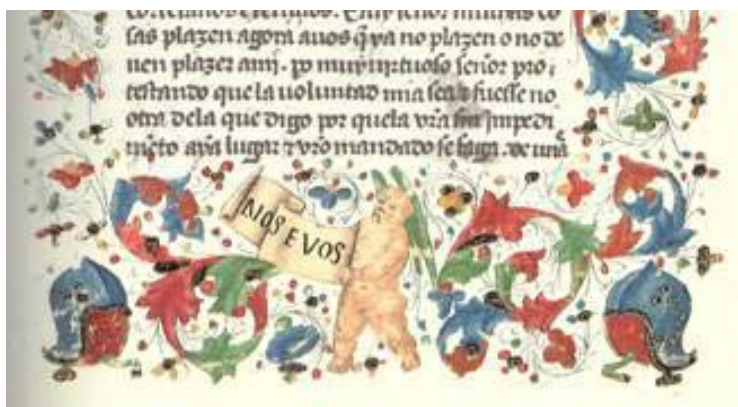 cortesanos exerçiçios. E muy señor muchas co
sas plazen agora auos q̃ ya no plazen o no de
uen plazer ami. po muy uirtuoso señor pro,
testando que la uoluntad mia sea z fuesse no
otra dela que digo por quela vrã sin jmpedi
mẽto aya lugar z vrõ mandado se faga. de una
NOS E VOS